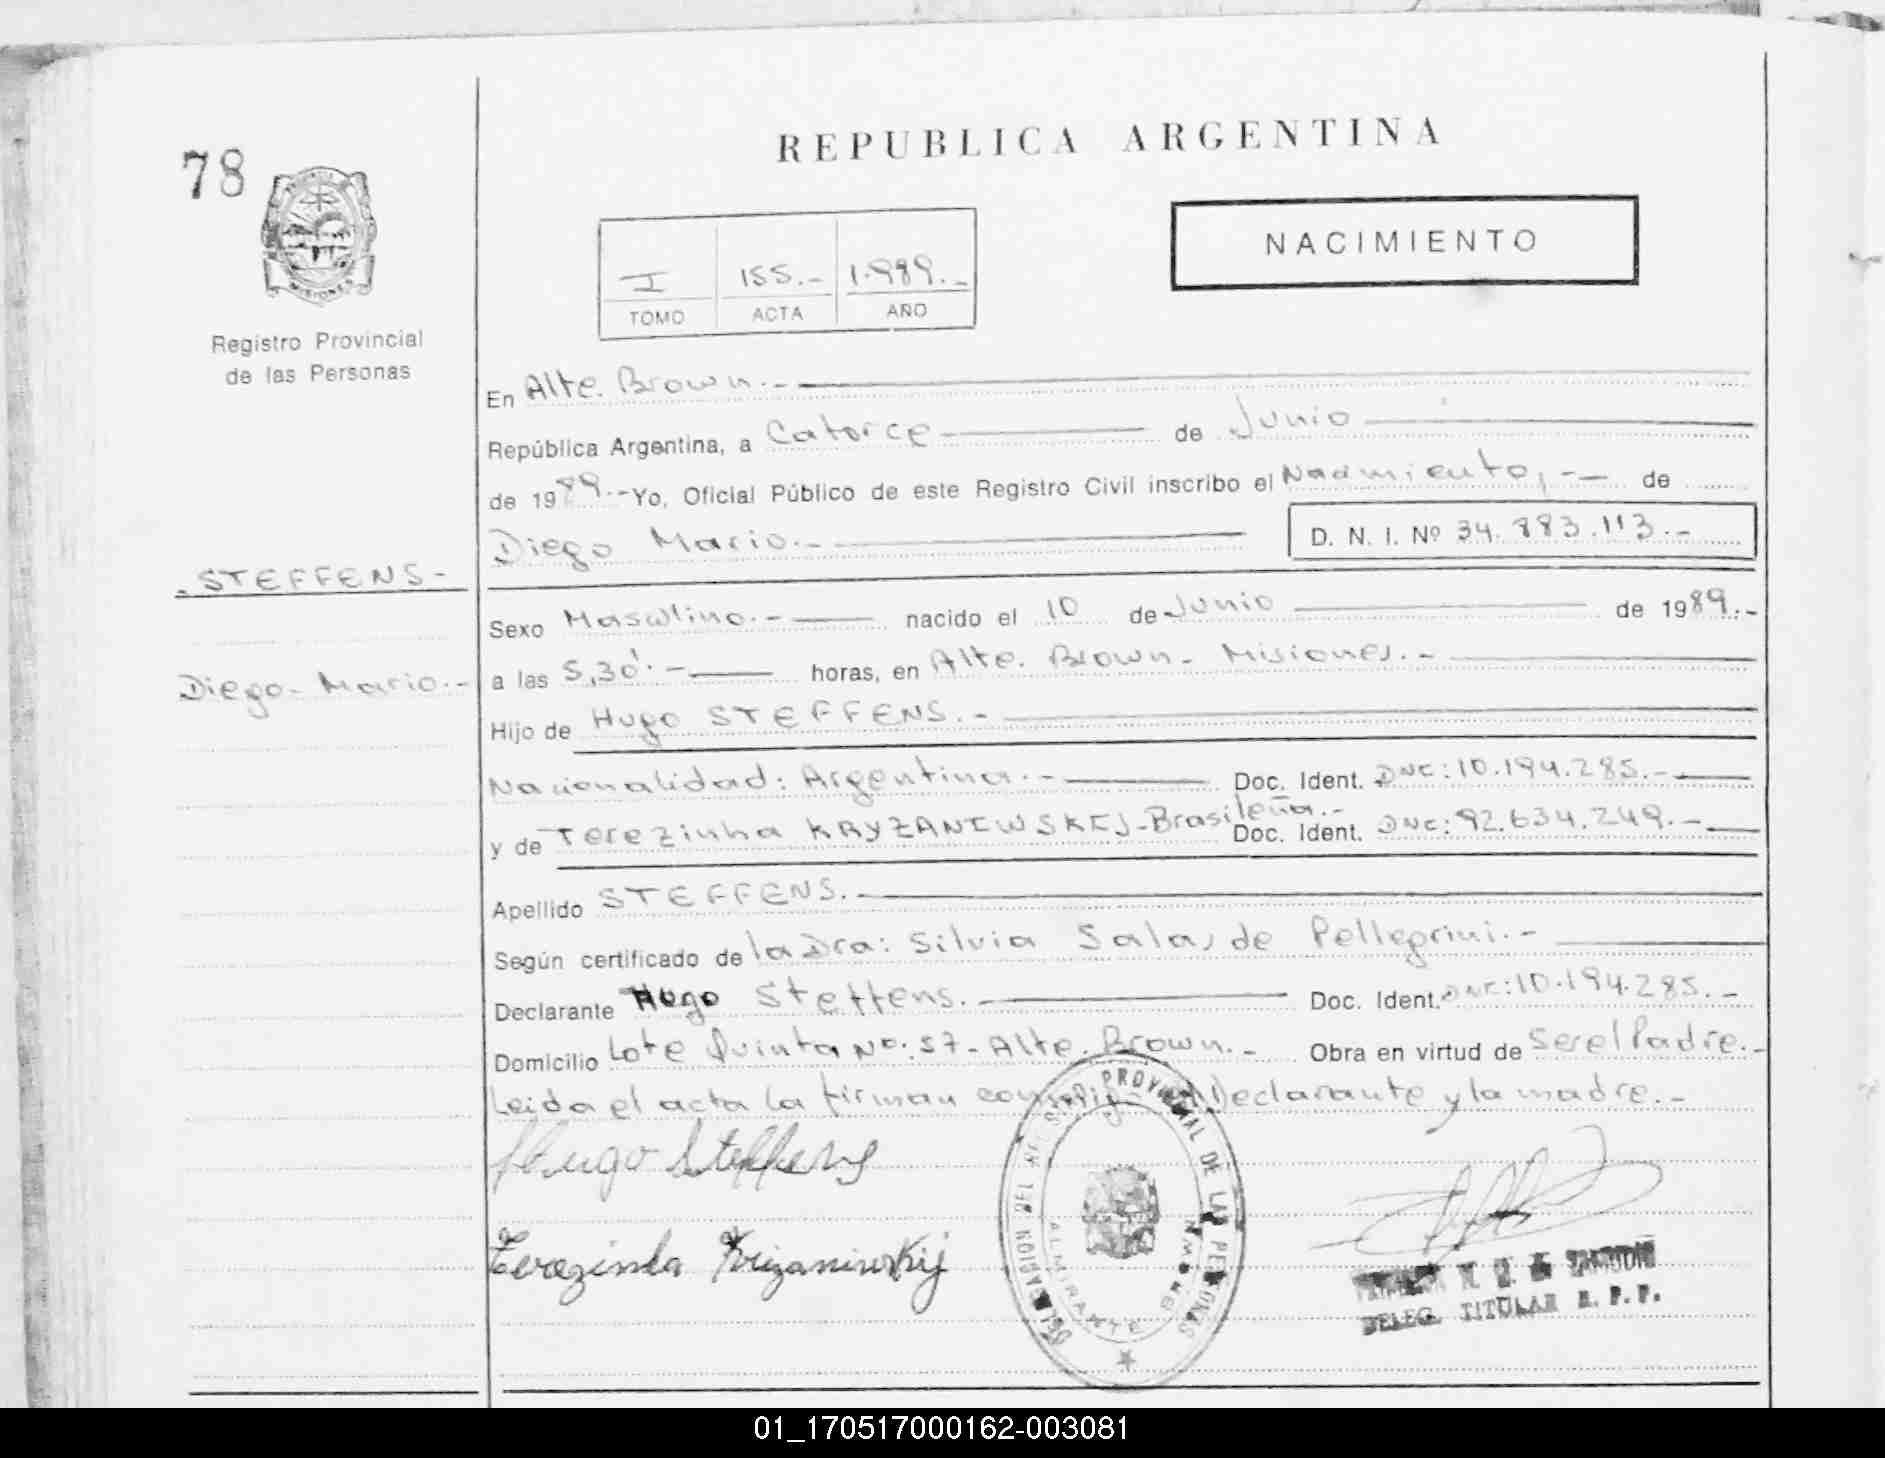 78
REPUBLICA ARGENTINA
NACIMIENTO
I 155.- 1.989.-
TOMO ACTA AÑO
MISIONES
Registro Provincial
de las Personas
En Alte. Brown.-
República Argentina, a Catorce de Junio
de 1989.- Yo, Oficial Público de este Registro Civil inscribo el Nacimiento,- de
Diego Mario.- D. N. I. Nº 34.883.113.-
- STEFFENS -
Diego Mario.-
Sexo Masculino.- nacido el 10 de Junio de 1989.-
a las 5,30'.- horas, en Alte. Brown - Misiones.-
Hijo de Hugo STEFFENS.-
Nacionalidad: Argentina.- Doc. Ident. DNI: 10.194.285.-
y de Terezinha KRYZANIWSKIJ-Brasileña.- Doc. Ident. DNI: 92.634.249.-
Apellido STEFFENS.-
Según certificado de la Dra: Silvia Sala, de Pellegrini.-
Declarante Hugo Steffens. Doc. Ident. DNI: 10.194.285.-
Domicilio Lote Quinta Nº. 57 - Alte. Brown.- Obra en virtud de Ser el Padre.-
Leida el acta la firman conmigo el Declarante y la madre.-
Hugo Steffens
Terezinha Krizaniwskij
DELEGACION DEL REGISTRO PROVINCIAL DE LAS PERSONAS
ALMIRANTE BROWN
DELEG. TITULAR R. P. P.
01_170517000162-003081